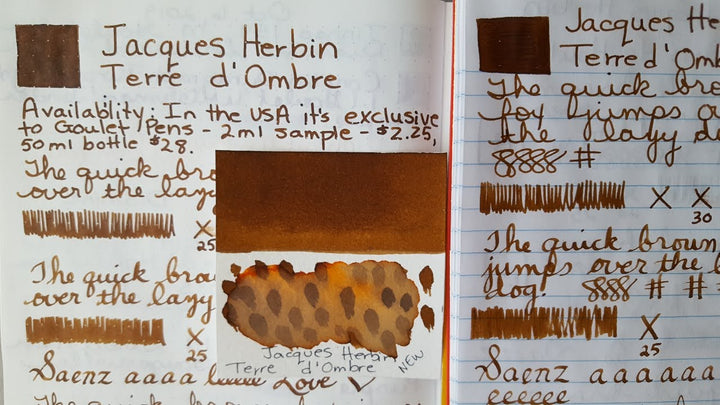 Jacques Herbin
Terre d'Ombre
Availablity: In the USA it's exclusive
to Goulet Pens - 2ml sample - $2.25,
50ml bottle $28.
The quick bro
over the lazy
X
25
The quick brou
over the lazy
X
25
Saenz aaaa eeeee Love
The
Jacques Herbin
Terre d'Ombre
NEW
Jacques He
Terre d'Omb
The quick bro
fox jumps o
the lazy do
8888 #
X X
30
The quick brown
jumps over the l
dog. 888 # #
X
25
Saenz aaaaaa
eeeeee